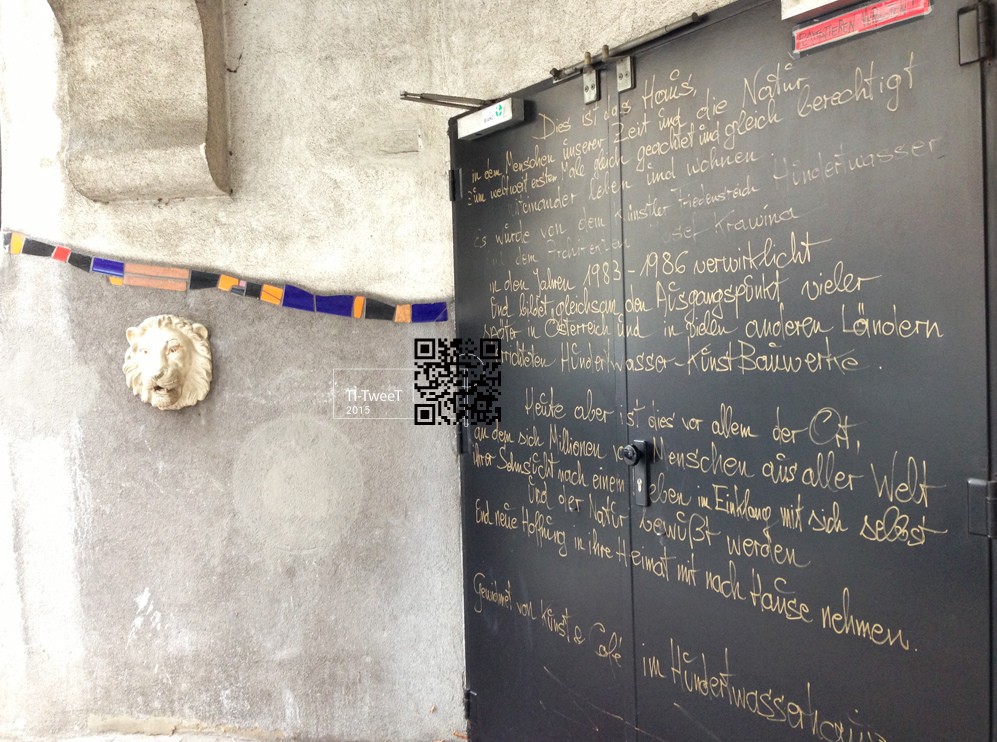 Dies ist das Haus,
in dem Menschen unserer Zeit und die Natur
zum weltweit ersten Male gleich geachtet und gleich berechtigt
miteinander leben und wohnen
Es wurde von dem Künstler Friedensreich Hundertwasser
und dem Architekten Josef Krawina
in den Jahren 1983-1986 verwirklicht
Und bildet gleichsam den Ausgangspunkt vieler
später in Österreich und in vielen anderen Ländern
errichteten Hundertwasser-KunstBauwerke.
Heute aber ist dies vor allem der Ort,
an dem sich Millionen von Menschen aus aller Welt
ihrer Sehnsucht nach einem Leben im Einklang mit sich selbst
Und der Natur bewußt werden
Und neue Hoffnung in ihre Heimat mit nach Hause nehmen.
Gewidmet von Kunst & Café im Hundertwasserhaus
TI-TweeT
2015